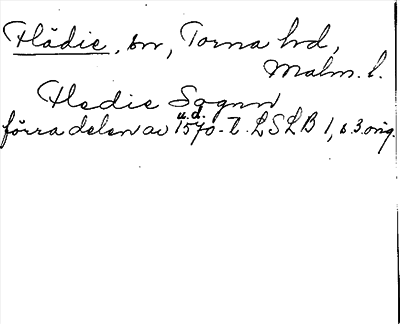 Flädie, sn, Torna hd,
Malm. l.
Fledie Sognn
u.d.
förra delen av 1570-t. LSLB 1, s. 3 orig.